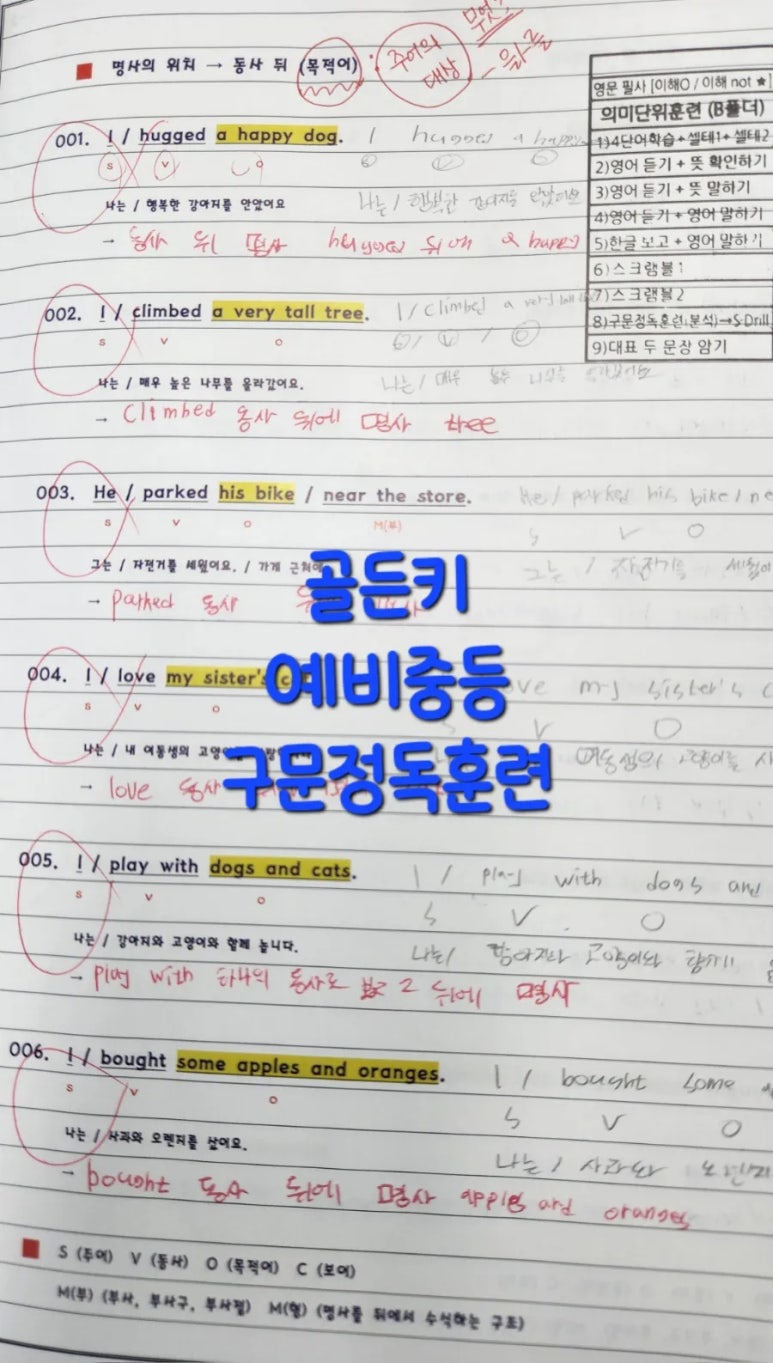 명사의 위치 → 동사 뒤 (목적어) : 주어의 대상
영문 필사 [이해O / 이해 not ★]
의미단위훈련 (B폴더)
1)4단어학습 + 셀테1 + 셀테2
2)영어 듣기 + 뜻 확인하기
3)영어 듣기 + 뜻 말하기
4)영어 듣기 + 영어 말하기
5)한글 보고 + 영어 말하기
6)스크램블1
7)스크램블2
8)구문정독훈련(분석)→S-Drill
9)대표 두 문장 암기
001. I / hugged a happy dog. I hugged a happy
S V O
나는 / 행복한 강아지를 안았어요 나는 / 행복한 강아지를 안았어요
→ 동사 뒤 명사 hugged 뒤에 a happy
002. I / climbed a very tall tree. I / climbed a very
S V O
나는 / 매우 높은 나무를 올라갔어요. 나는 / 매우
→ climbed 동사 뒤에 명사 tree
003. He / parked his bike / near the store. He / parked his bike / ne
S V O M(부) S V O
그는 / 자전거를 세웠어요. / 가게 그는 / 자전거를
→ parked 동사
골든키
예비중등
구문정독훈련
004. I / love my sister's my sister's
S V O V O
나는 / 내 여동생의 여동생의 고양이를
→ love 동사
005. I / play with dogs and cats. I / play with dogs and
S V O S V O
나는 / 강아지와 고양이와 함께 놉니다. 나는 / 고양이와
→ play with 하나의 동사로 보고 뒤에 명사
006. I / bought some apples and oranges. I / bought some
S V O S V O
나는 / 사과와 오렌지를 샀어요. 나는 / 사과와
→ bought 동사 뒤에 명사 apples and oranges
S (주어) V (동사) O (목적어) C (보어)
M(부) (부사, 부사구, 부사절) M(형) (명사를 뒤에서 수식하는 구조)